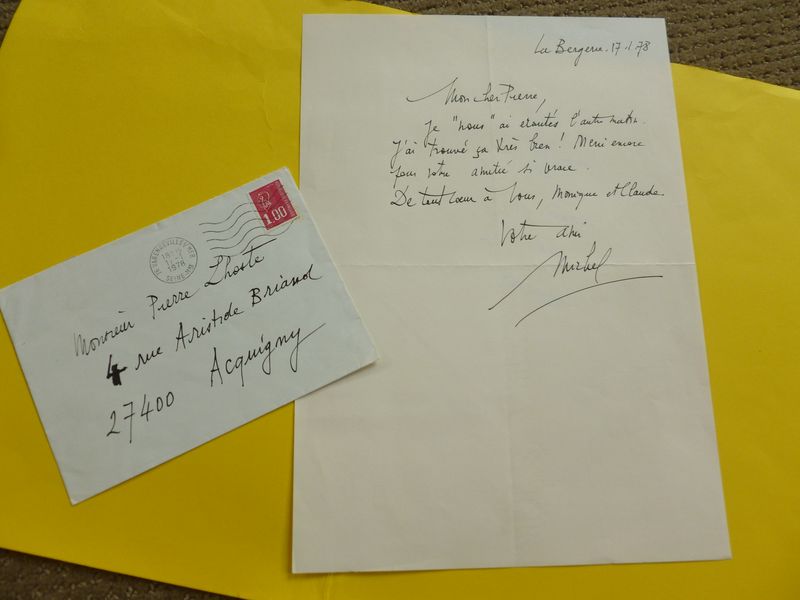 La Bergerie. 17.1.78
Mon cher Pierre,
Je "nous" ai écoutés l'autre matin.
J'ai trouvé ça très bien ! Merci encore
pour votre amitié si vraie.
De tout cœur à vous, Monique et Claude.
Votre ami
Michel
1.00
1978
SEINE-MME
Monsieur Pierre Lhoste
4 rue Aristide Briand
27400 Acquigny